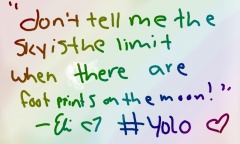 "don't tell me the
sky is the limit
when there are
foot prints on the moon!"
-Eli <3 #Yolo ♡